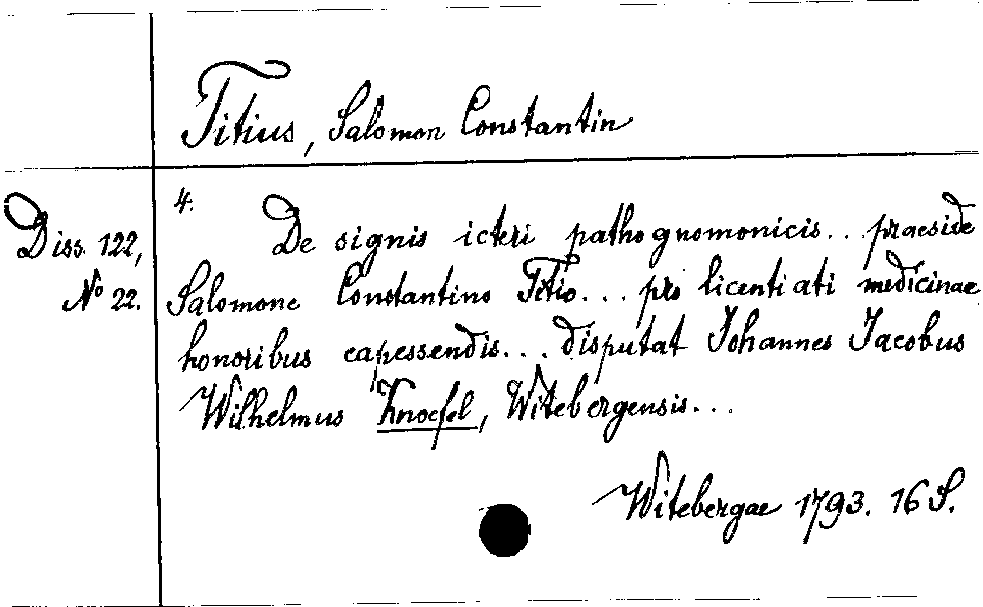 Titius, Salomon Constantin
Diss. 122,
No 22.
4.
De signis icteri pathognomonicis... praeside
Salomone Constantino Titio... pro licentiati medicinae
honoribus capessendis... disputat Johannes Jacobus
Wilhelmus Knoefel, Witebergensis...
Witebergae 1793. 16 S.